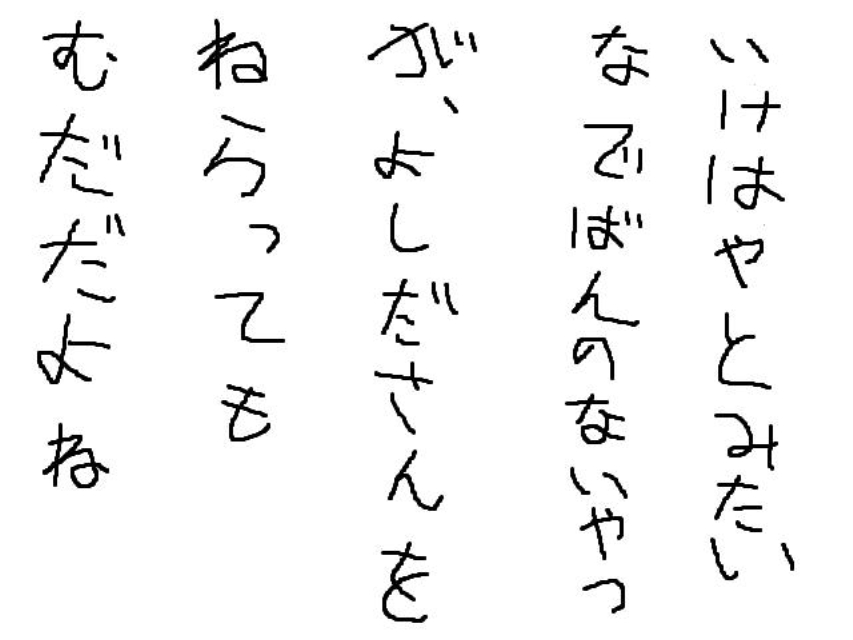 いけはやとみたい
なでばんのないやつ
が、よしださんを
ねらっても
むだだよね